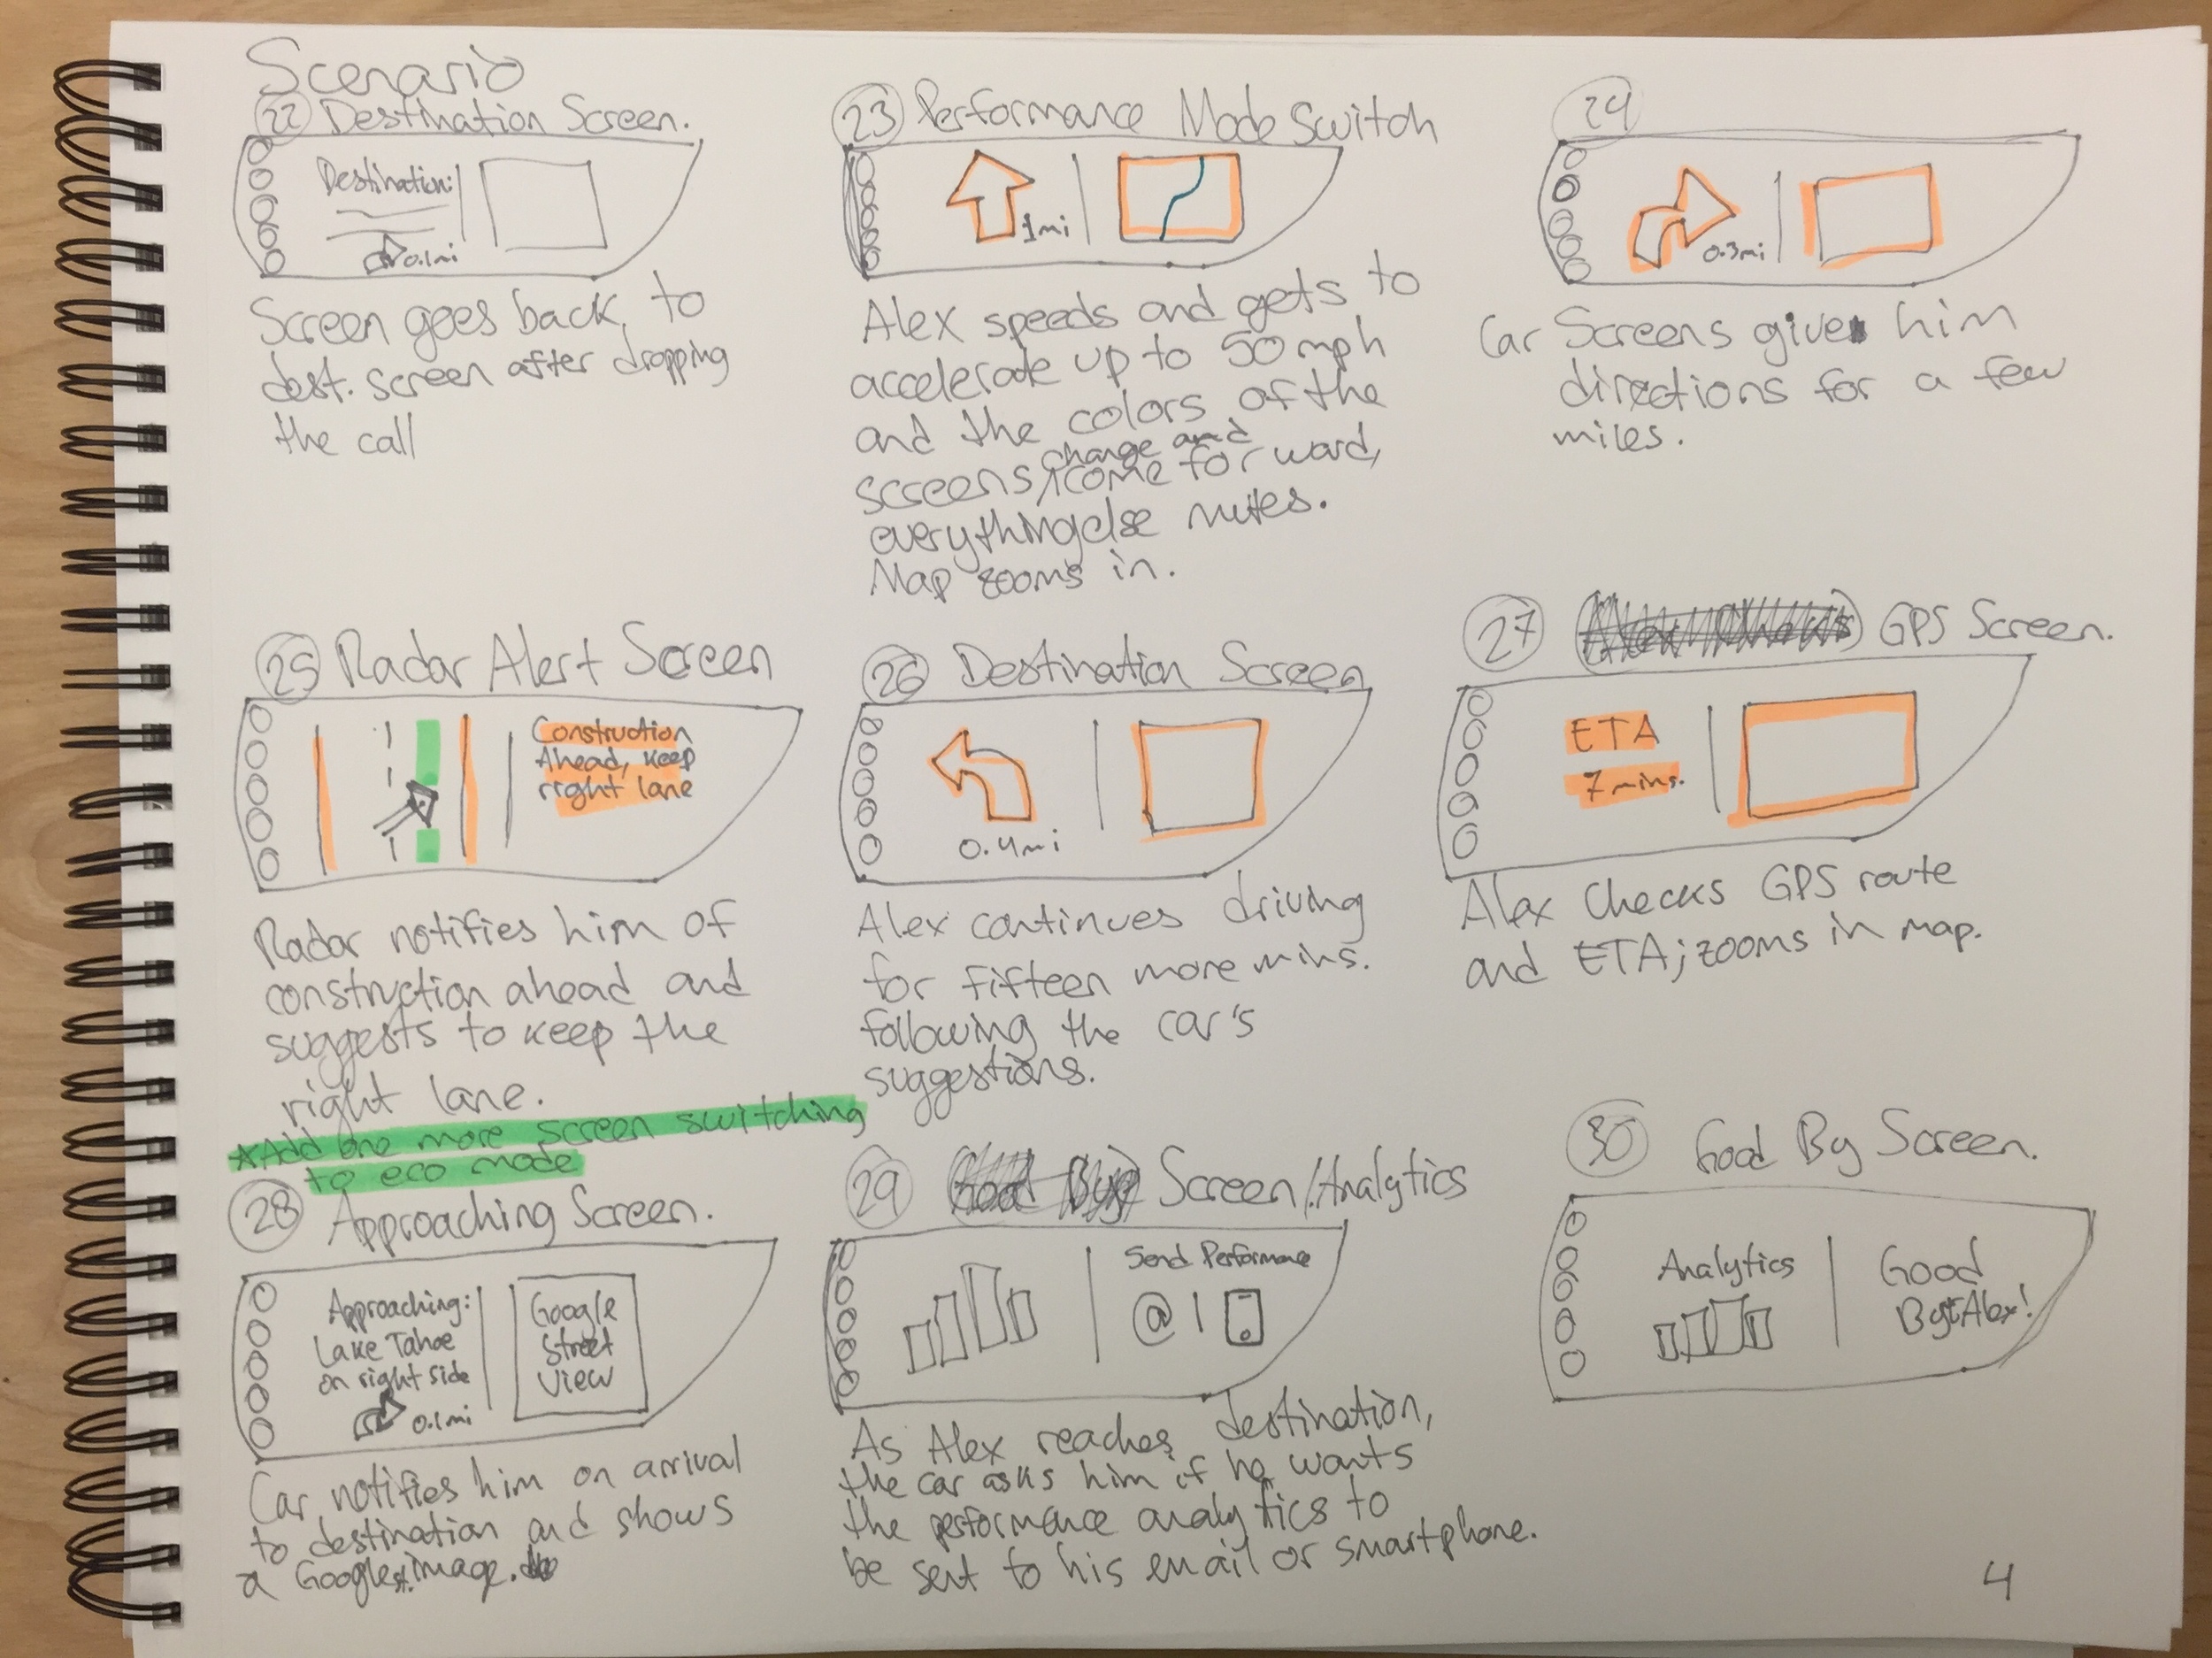 Scenario
22 Destination Screen.
Destination:
0.1mi
Screen goes back to
dest. screen after dropping
the call
23 Performance Mode Switch
1mi
Alex speeds and gets to
accelerate up to 50 mph
and the colors of the
change and
screens come forward,
everything else mutes.
Map zooms in.
24
0.3mi
Car Screens give him
directions for a few
miles.
25 Radar Alert Screen
Construction
Ahead, keep
right lane
Radar notifies him of
construction ahead and
suggests to keep the
right lane.
*Add one more screen switching
to eco mode
26 Destination Screen
0.4mi
Alex continues driving
for fifteen more mins.
following the car's
suggestions.
27 GPS Screen.
ETA
7 mins.
Alex Checks GPS route
and ETA; zooms in map.
28 Approaching Screen.
Approaching:
Lake Tahoe
on right side
0.1mi
Google
Street
View
Car notifies him on arrival
to destination and shows
a Google st. image.
29 Good Bye Screen/Analytics
Send Performance
@ |
As Alex reaches destination,
the car asks him if he wants
the performance analytics to
be sent to his email or smartphone.
30 Good By Screen.
Analytics
Good
Alex!
4